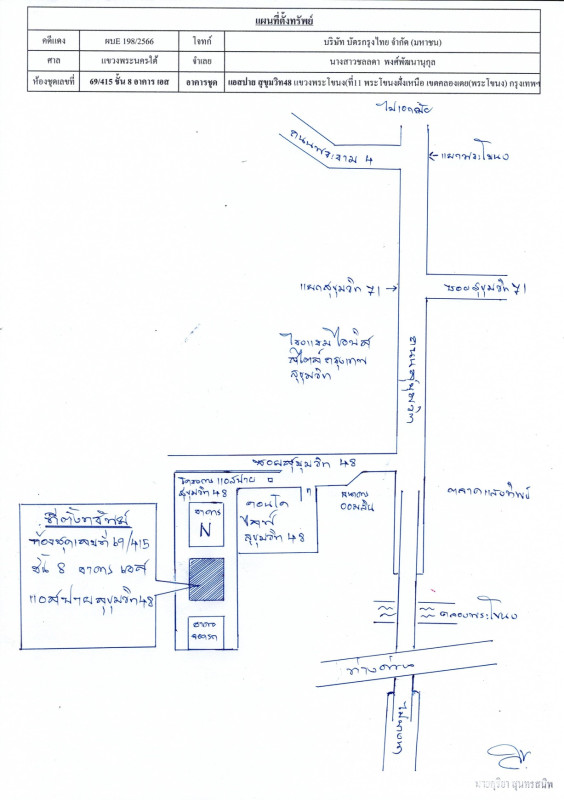 แผนที่ตั้งทรัพย์
คดีแดง ผบE 198/2566 โจทก์ บริษัท บัตรกรุงไทย จำกัด (มหาชน)
ศาล แขวงพระนครใต้ จำเลย นางสาวชลลดา พงศ์พัฒนานุกุล
ห้องชุดเลขที่ 69/415 ชั้น 8 อาคาร เอส อาคารชุด แอสปาย สุขุมวิท48 แขวงพระโขนง(ที่11 พระโขนงฝั่งเหนือ เขตคลองเตย(พระโขนง) กรุงเทพฯ
ไปเอกมัย
ถนนพระราม 4
แยกพระโขนง
แยกสุขุมวิท 71
ซอยสุขุมวิท 71
ถนนสุขุมวิท
โรงแรมไอบิส
สไตล์ กรุงเทพ
สุขุมวิท
ซอยสุขุมวิท 48
โครงการ แอสปาย
สุขุมวิท 48
อาคาร
N
คอนโด
ไลฟ์
สุขุมวิท 48
ธนาคาร
ออมสิน
ตลาดแสงทิพย์
ที่ตั้งทรัพย์
ห้องชุดเลขที่ 69/415
ชั้น 8 อาคาร เอส
แอสปายสุขุมวิท 48
อาคาร
จอดรถ
คลองพระโขนง
ทางด่วน
ไปบางนา